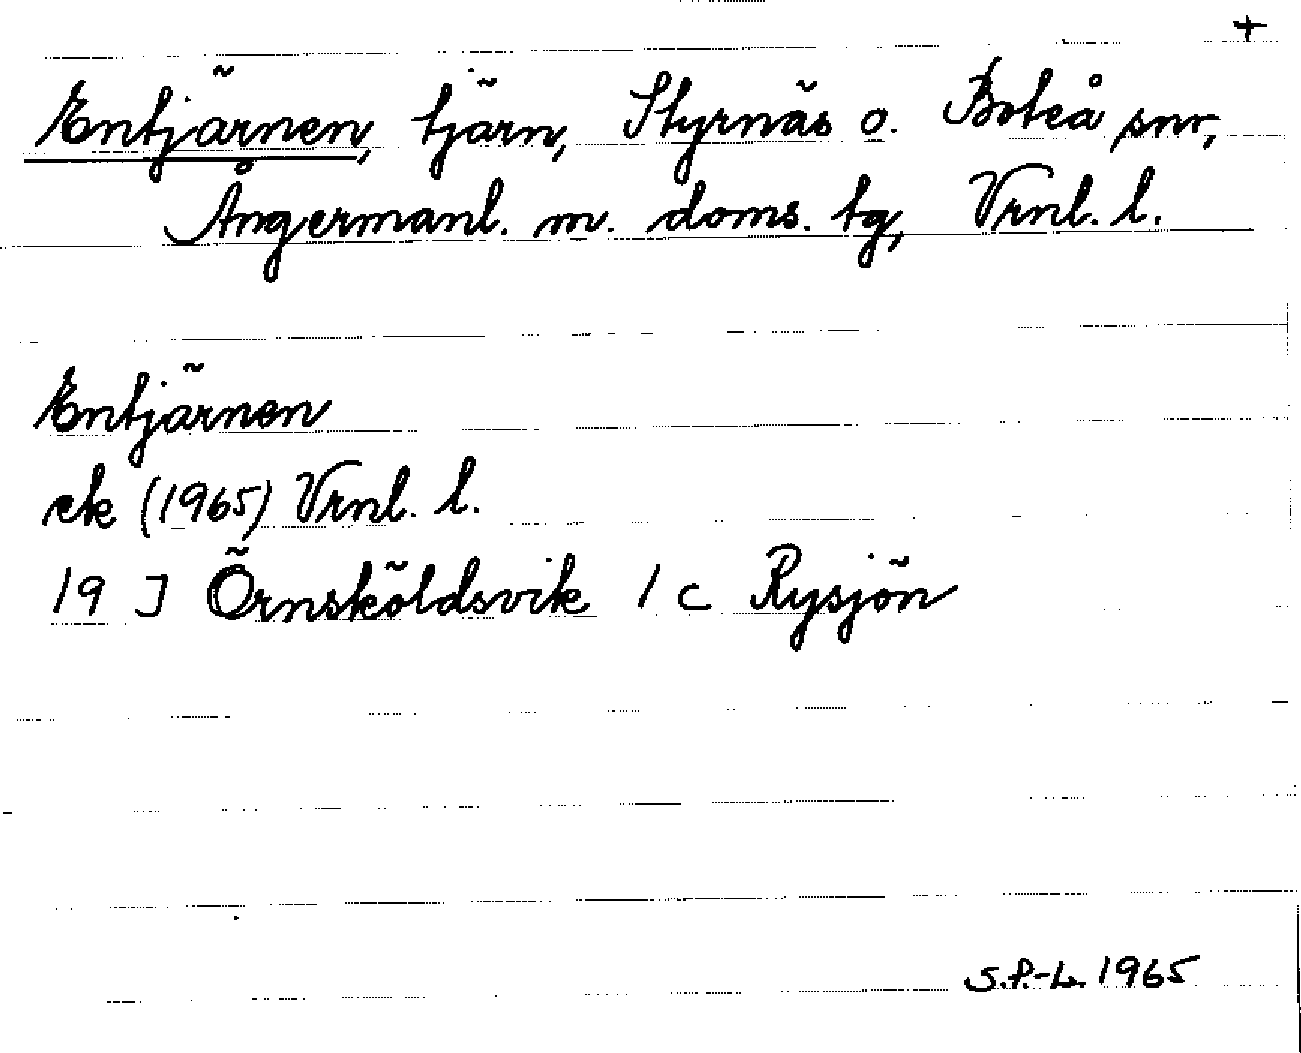 +
Entjärnen, tjärn, Styrnäs o. Boteå snr,
Ångermanl. m. doms. tg, Vrnl. l.
Entjärnen
ek (1965) Vrnl. l.
19 J Örnsköldsvik 1 c Rysjön
S.P.-L. 1965